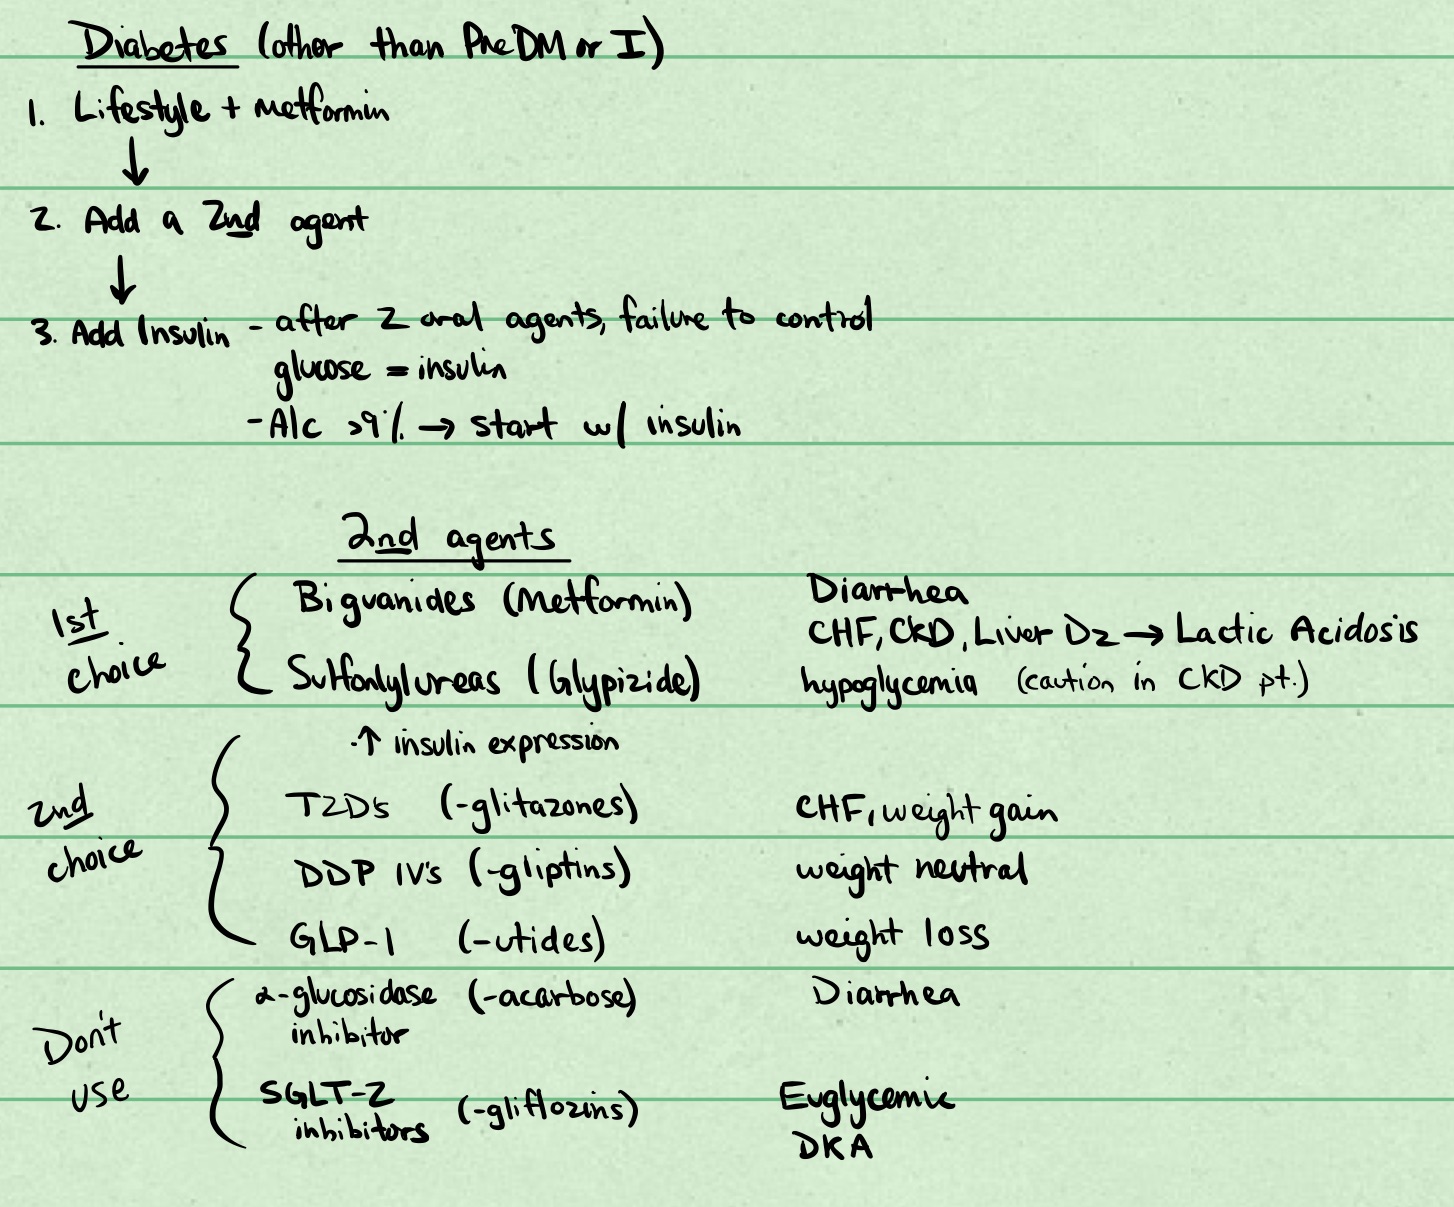 Diabetes (other than PreDM or I)
1. Lifestyle + Metformin
↓
2. Add a 2nd agent
↓
3. Add Insulin - after 2 oral agents, failure to control
glucose = insulin
- A1c >9% → start w/ insulin
2nd agents
1st choice
Biguanides (Metformin) Diarrhea
CHF, CKD, Liver Dz → Lactic Acidosis
Sulfonlylureas (Glypizide) hypoglycemia (caution in CKD pt.)
·↑ insulin expression
2nd choice
TZD's (-glitazones) CHF, weight gain
DDP IV's (-gliptins) weight neutral
GLP-1 (-utides) weight loss
Don't use
α-glucosidase (-acarbose) Diarrhea
inhibitor
SGLT-2 (-gliflozins) Euglycemic
inhibitors DKA